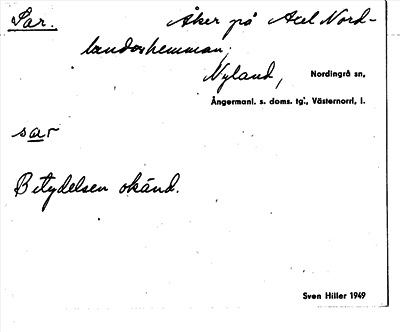 Sar. Åker på Axel Nord-
landershemman,
Nyland, Nordingrå sn,
Ångermanl. s. doms. tg., Västernorrl. l.
sar
Betydelsen okänd.
Sven Hiller 1949